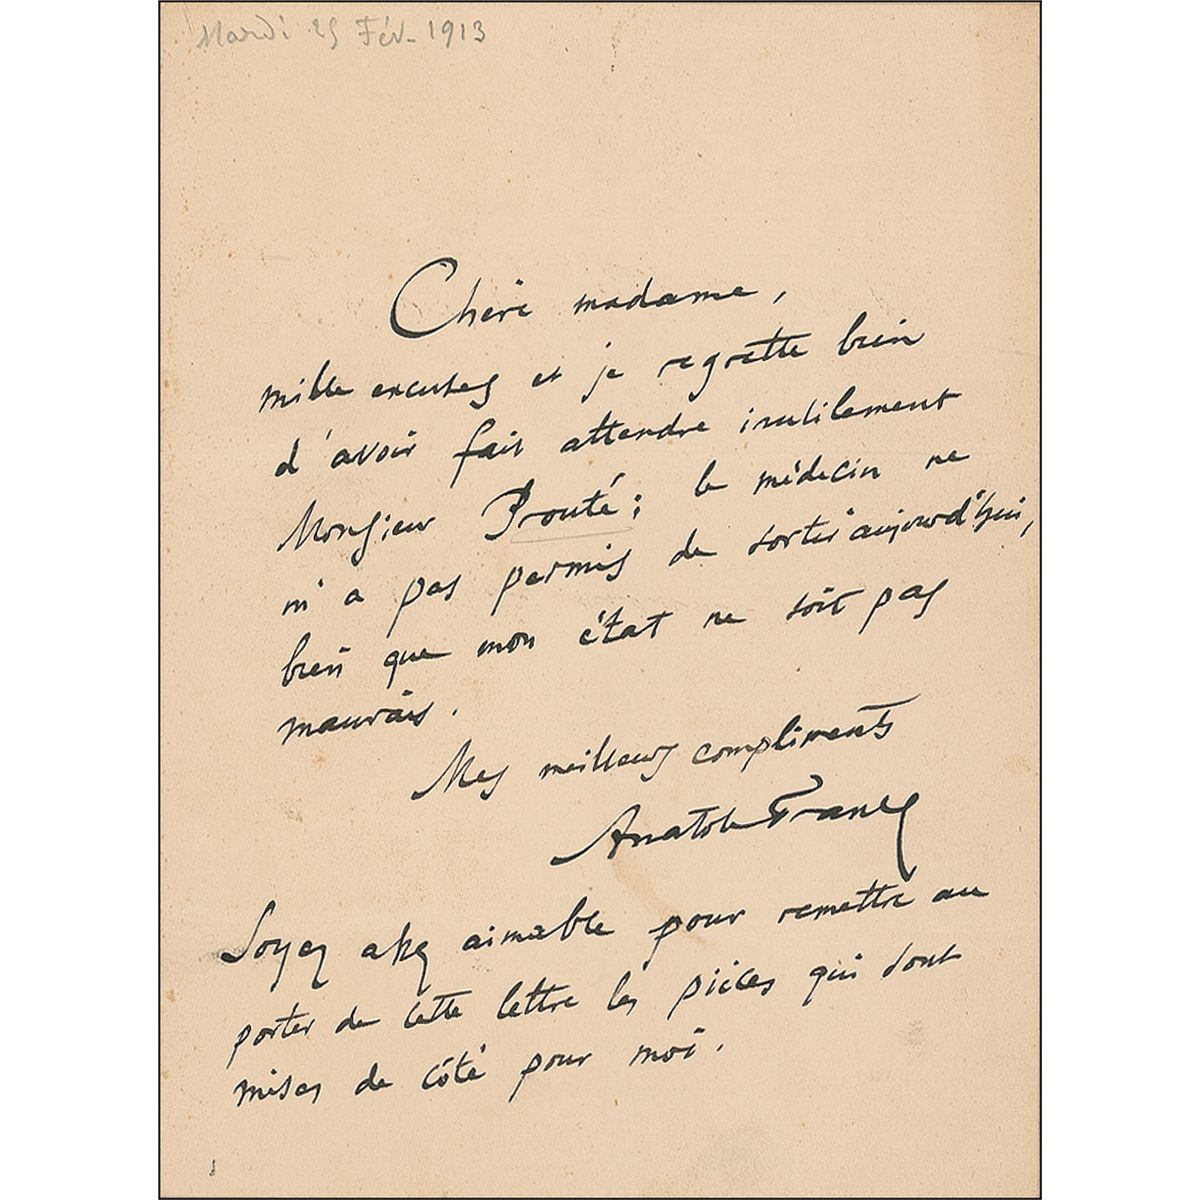 Mardi 25 Fév. 1913
Chère madame,
mille excuses et je regrette bien
d'avoir fait attendre inutilement
Monsieur Prouté; le médecin ne
m'a pas permis de sortir aujourd'hui,
bien que mon état ne soit pas
mauvais.
Mes meilleurs compliments
Anatole France
Soyez assez aimable pour remettre au
porteur de cette lettre les pièces qui sont
mises de côté pour moi.